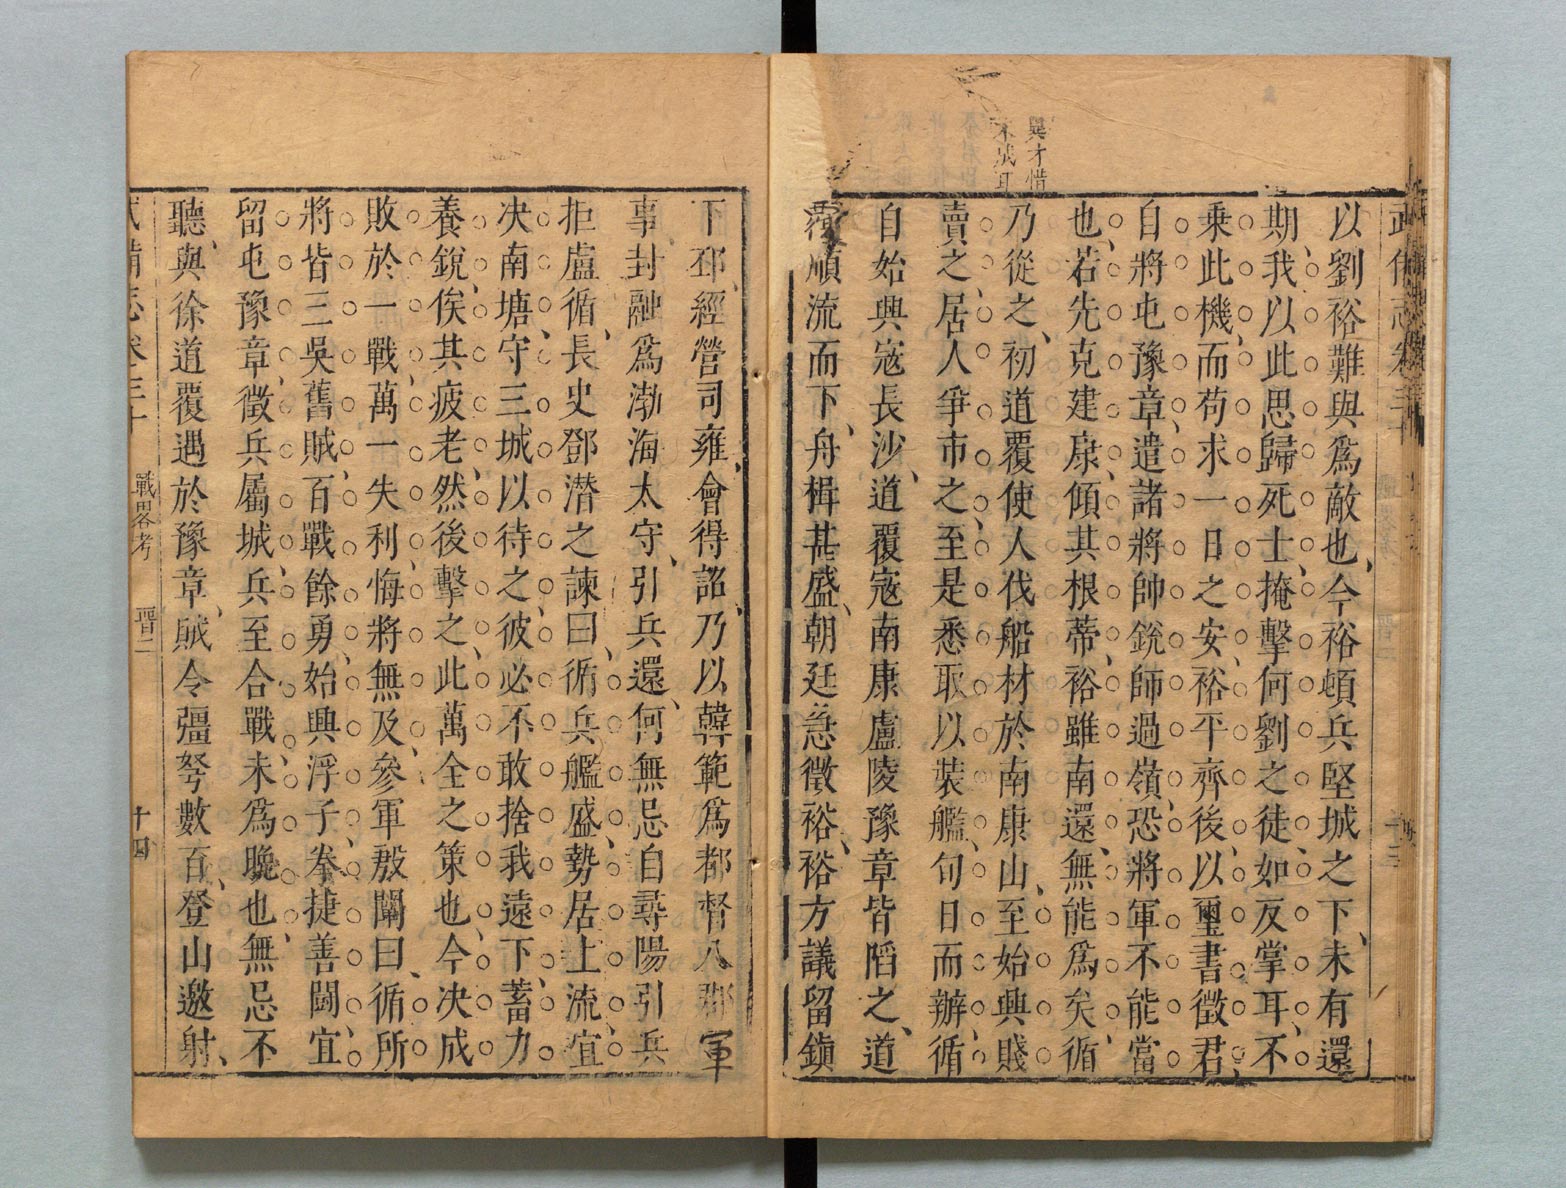 異才惜
未成耳
武備志卷三十
以劉裕難與爲敵也今裕頓兵堅城之下未有還
期我以此思歸死士掩擊何劉之徒如反掌耳不
乘此機而苟求一日之安裕平齊後以璽書徵君
自將屯豫章遣諸將帥銳師過嶺恐將軍不能當
也若先克建康傾其根蒂裕雖南還無能爲矣循
乃從之初道覆使人伐船材於南康山至始興賤
賣之居人爭市之至是悉取以裝艦旬日而辦循
自始興寇長沙道覆寇南康廬陵豫章皆陷之道
覆順流而下舟楫甚盛朝廷急徵裕裕方議留鎮
下邳經營司雍會得詔乃以韓範爲都督八郡軍
事封融爲渤海太守引兵還何無忌自尋陽引兵
拒盧循長史鄧潛之諫曰循兵艦盛勢居上流宜
决南塘守三城以待之彼必不敢捨我遠下蓄力
養銳俟其疲老然後擊之此萬全之策也今决成
敗於一戰萬一失利悔將無及參軍殷闡曰循所
將皆三吳舊賊百戰餘勇始興浮子拳捷善鬬宜
留屯豫章徵兵屬城兵至合戰未爲晚也無忌不
聽與徐道覆遇於豫章賊令彊弩數百登山邀射
武備志卷三十 戰畧考 晉二 十四